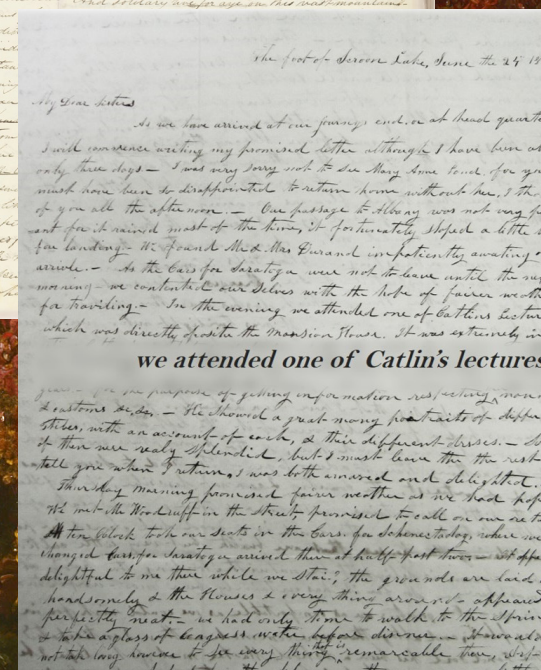 And solitary are for aye on this vast mountains
The foot of Scroon Lake, June the 25
My Dear Sisters
As we have arrived at our journeys end, or at head quarte
I will commence writing my promised letter although I have been
only three days – I was very sorry not to see Mary Anne Cond, for you
must have been so disappointed to return home without her, I tho
of you all the afternoon. – Our passage to Albany was not very
ant for it rained most of the time, it fortunately stoped a little
for landing – We found Mr & Mrs Durand impatiently awaiting
arrivle. – As the Cars for Saratoga were not to leave until the
morning – we contented our Selves with the hope of fairer weath
for traviling – In the evening we attended one of Catlins Lectur
which was directly oposite the Mansion House. It was extremely in
we attended one of Catlin's lectures
the purpose of getting information respecting
& customs &c, &c, – He Showed a great many portraits of diffe
tribes, with an account of each, & their different dresses. –
of them were realy splendid, but I must leave the the rest
tell you when I return, I was both amused and delighted.
Thursday morning promised fairer weather as we had hop
We met Mr Woodruff in the Street promised to call on our
At ten Oclock took our Seats in the Cars. for Schenectady, where we
changed Cars for Saratoga arrived there at half past two – it appe
delightful to me there while we Staid, the grounds are laid
handsomely & the Houses & every thing around appeared
perfectly neat – we had only time to walk to the Sprin
& take a glass of Congress water before dinner. – It would
not take long however to see every thing that is remarkable